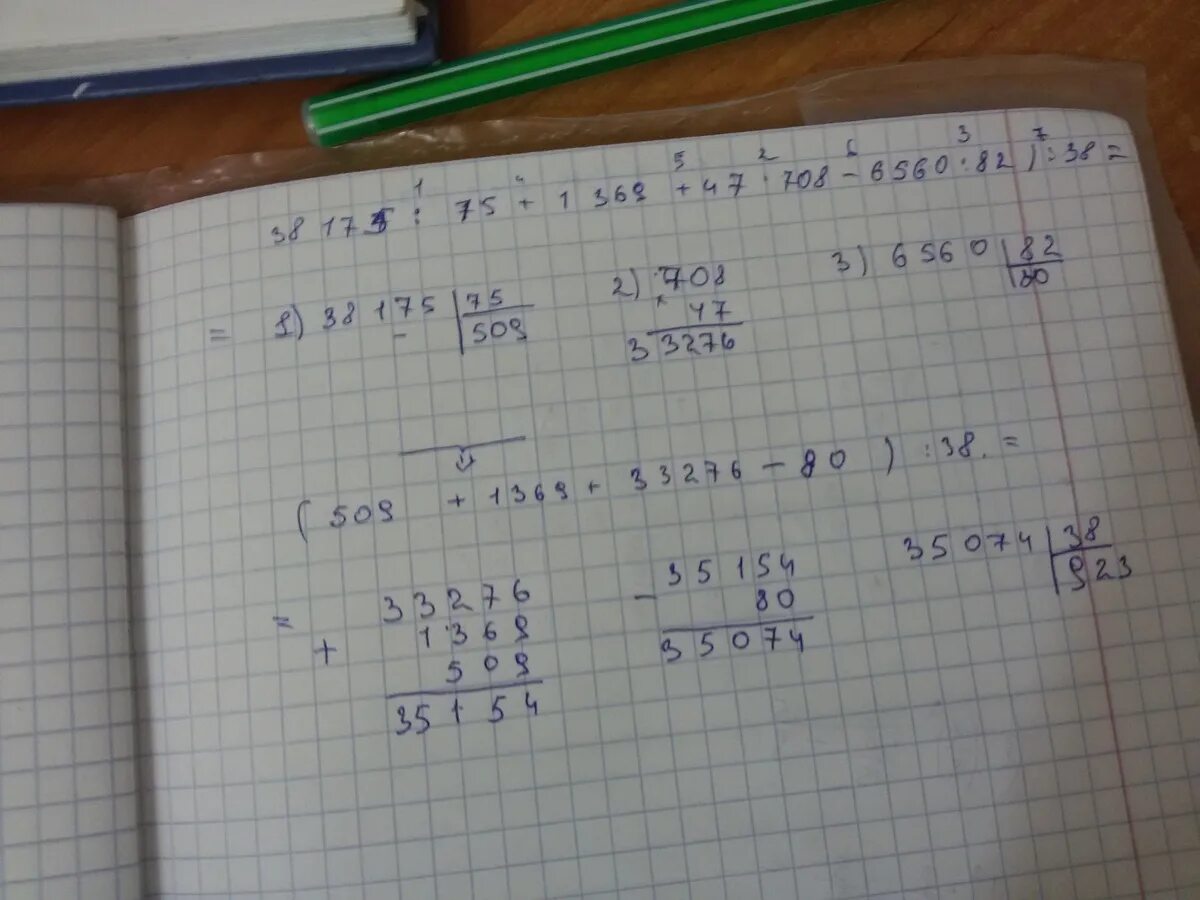 1 4 5 2 6 3 7
38 175 : 75 + 1 369 + 47 · 708 - 6560 : 82 ) : 38 =
= 1) 38 175 | 75
509
-
2) 708
× 47
3 3276
3) 6560 | 82
80
( 509 + 1369 + 33276 - 80 ) : 38. =
= 33276
+ 1369
509
35154
- 35154
80
35074
35074 | 38
923